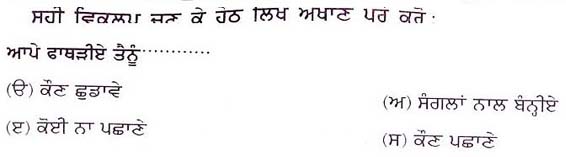 ਸਹੀ ਵਿਕਲਪ ਚੁਣ ਕੇ ਹੇਠ ਲਿਖੇ ਅਖਾਣ ਪੂਰੇ ਕਰੋ ·
ਆਪੇ ਫਾਥੜੀਏ ਤੈਨੂੰ············
(ੳ) ਕੌਣ ਛੁਡਾਵੇ
(ਅ) ਸੰਗਲਾਂ ਨਾਲ ਬੰਨ੍ਹੀਏ
(ੲ) ਕੋਈ ਨਾ ਪਛਾਣੇ
(ਸ) ਕੌਣ ਪਛਾਣੇ